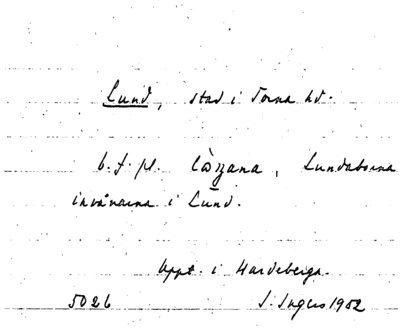 Lund, stad i Torna hd.
b. f. pl. Lundaborna
invånarna i Lund.
Uppt. i Hardeberga.
5026 S. Ingers 1952